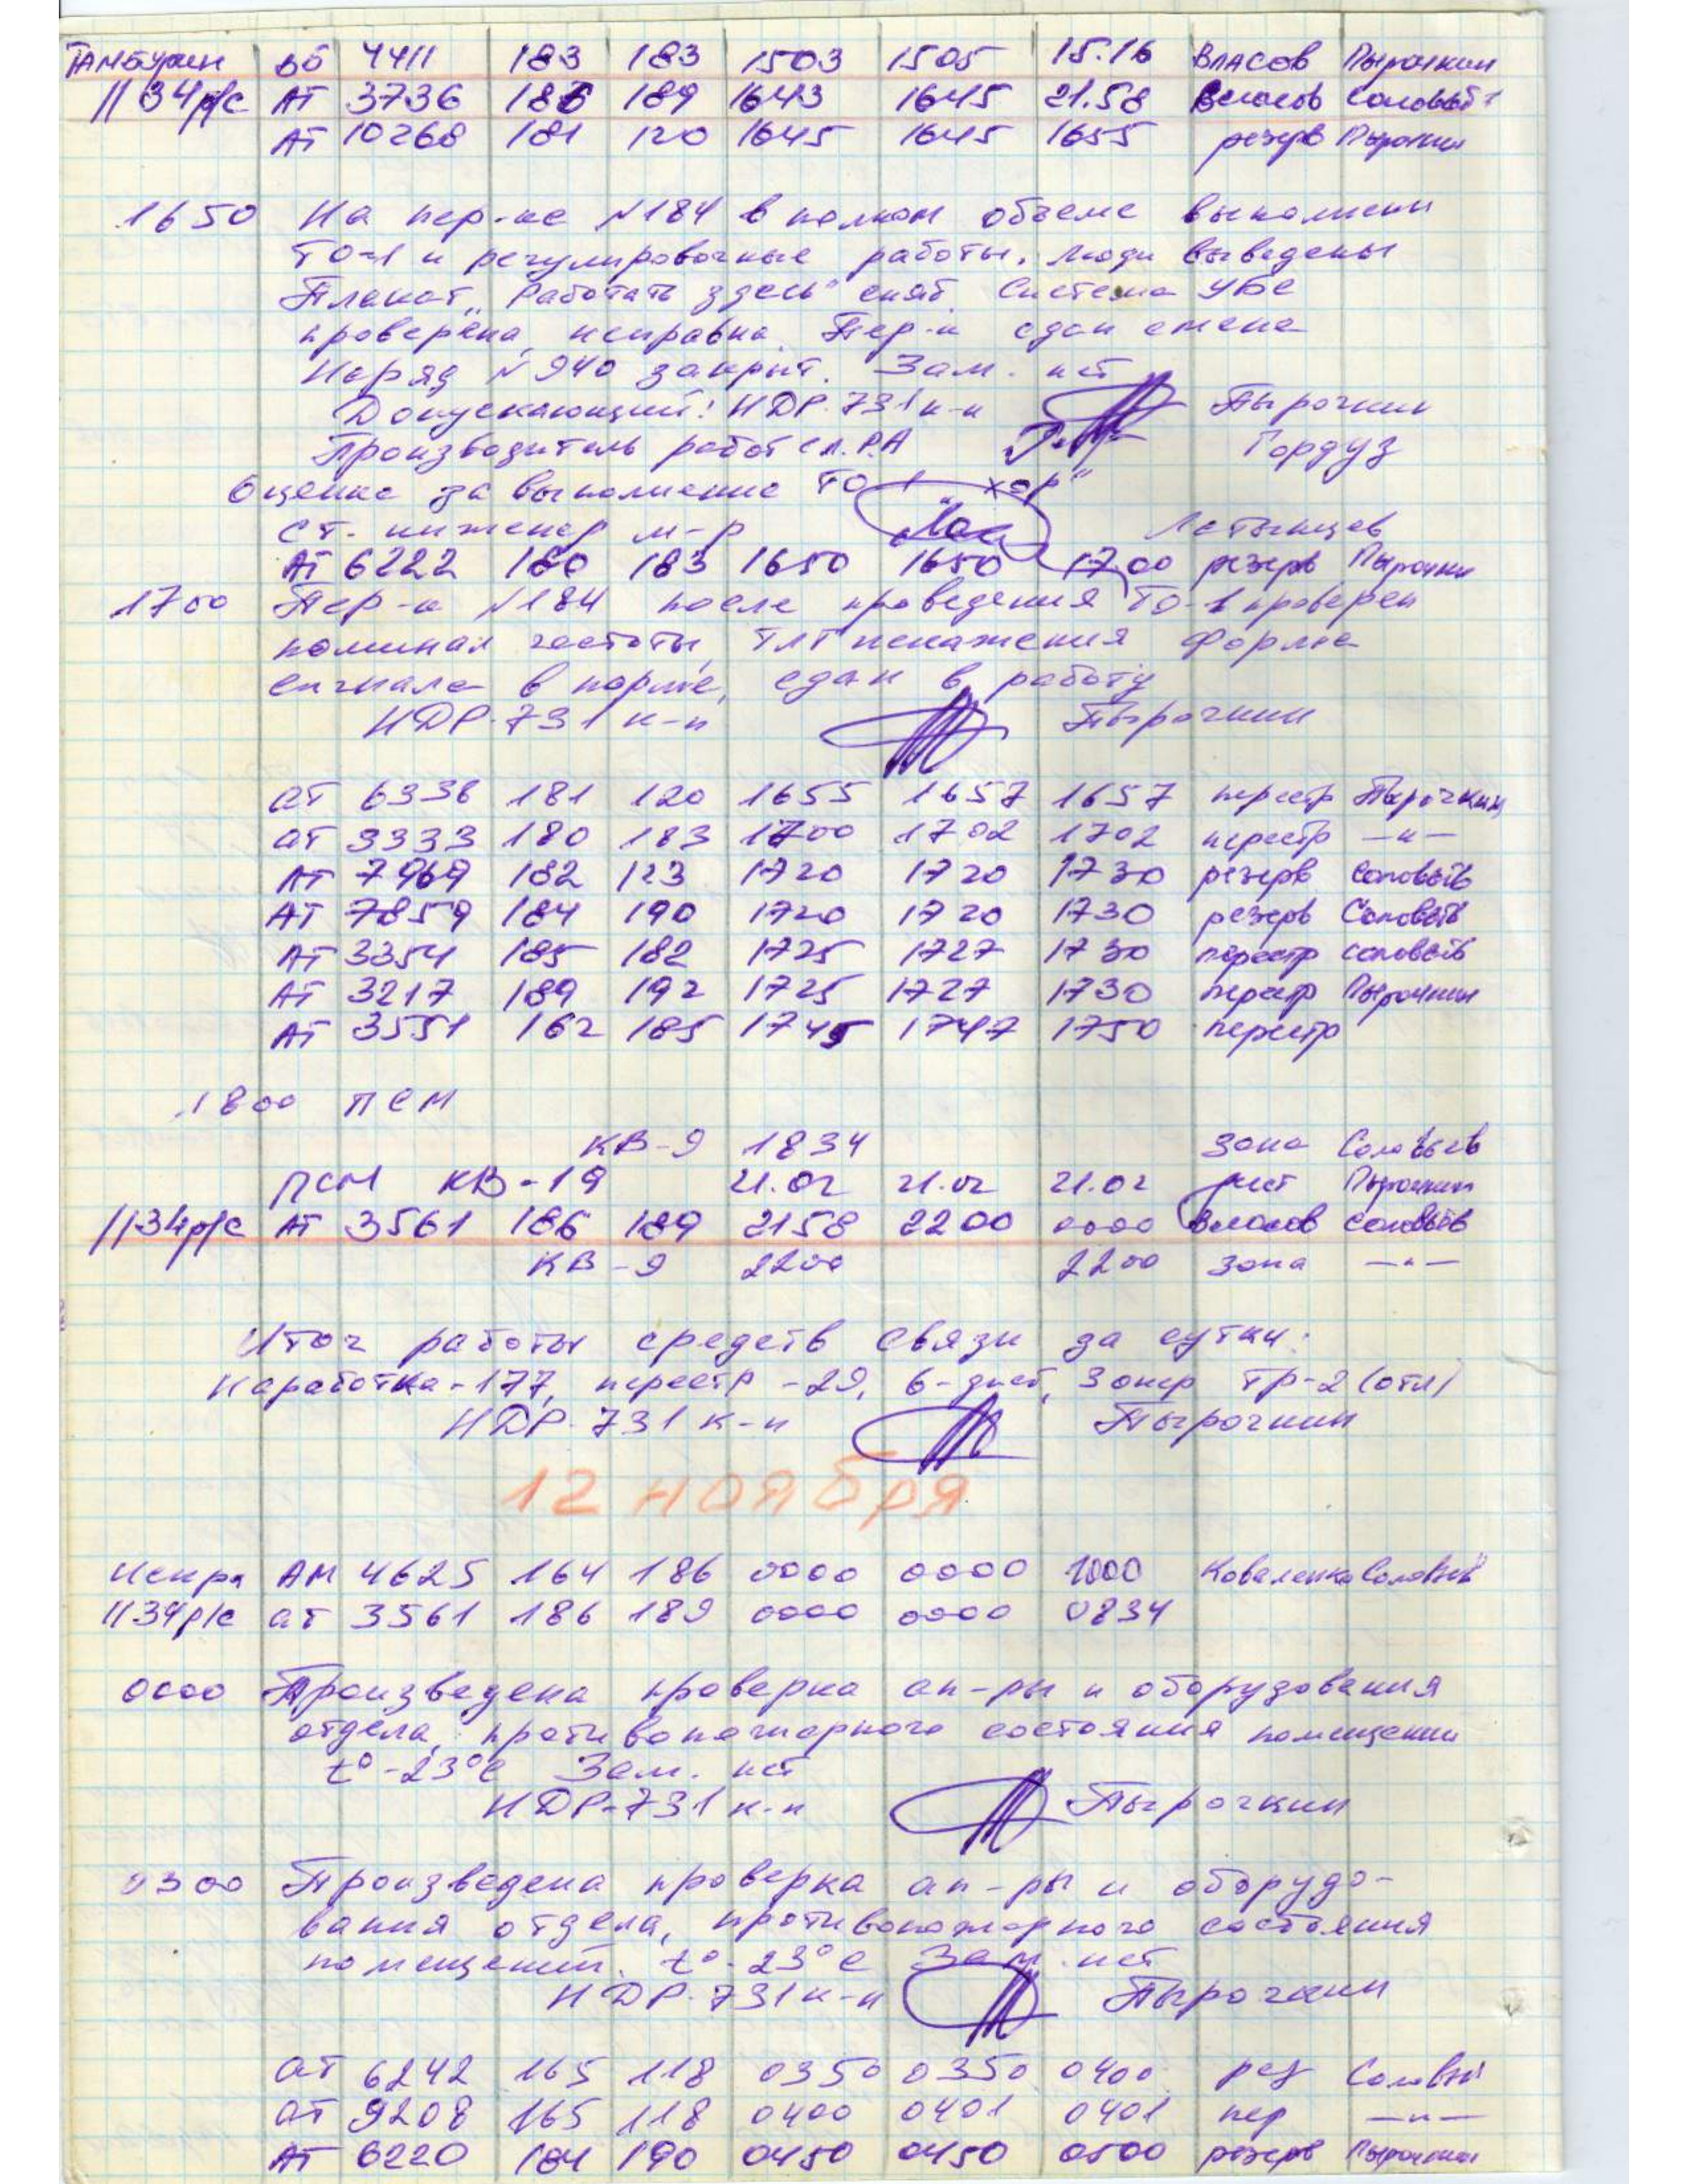 Тамбурин ББ 4411 183 183 1503 1505 15.16 Власов Пырочкин
1134 р/с АТ 3736 186 189 1643 1645 21.58 Власов Соловьёв
АТ 10268 181 120 1645 1645 1655 резерв Пырочкин
1650 На пер-ке №184 в полном объеме выполнены
ТО-1 и регулировочные работы. Люди выведены
Плакат „Работать здесь" снят. Система УБС
проверена, исправна. Пер-к сдан смене
Наряд №940 закрыт. Зам. нет
Допускающий: НДР-731 к-н Пырочкин
Производитель работ сл. РА Гордуз
Оценка за выполнение ТО-1 „хор"
Ст. инженер м-р Латынцев
АТ 6222 180 183 1650 1650 1700 резерв Пырочкин
1700 Пер-к №184 после проведения ТО-1 проверен
номинал частоты, ТЛГ искажения форма
сигнала в норме, сдан в работу
НДР-731 к-н Пырочкин
АТ 6338 181 120 1655 1657 1657 перестр Пырочкин
АТ 3333 180 183 1700 1702 1702 перестр —"—
АТ 7969 182 123 1720 1720 1730 резерв Соловьёв
АТ 7859 184 190 1720 1720 1730 резерв Соловьёв
АТ 3354 185 182 1725 1727 1730 перестр Соловьёв
АТ 3217 189 192 1725 1727 1730 перестр Пырочкин
АТ 3551 162 185 1745 1747 1750 перестр
1800 ПСМ
КВ-9 1834 зона Соловьев
ПСМ КВ-19 21.02 21.02 21.02 Пырочкин
1134 р/с АТ 3561 186 189 2158 2200 0000 Власов Соловьёв
КВ-9 2200 2200 зона —"—
Итог работы средств связи за сутки:
Наработка-177, перестр -29, 6- Тр-2 (отл)
НДР-731 к-н Пырочкин
12 ноября
Искра АМ 4625 164 186 0000 0000 1000 Коваленко Соловьёв
1134 р/с АТ 3561 186 189 0000 0000 0834
0000 Произведена проверка ап-ры и оборудования
отдела, противопожарного состояния помещений
t°-23°С Зам. нет
НДР-731 к-н Пырочкин
0300 Произведена проверка ап-ры и оборудо-
вания отдела, противопожарного состояния
помещений. t°-23°С Зам. нет
НДР-731 к-н Пырочкин
АТ 6242 165 118 0350 0350 0400 рез Соловьёв
АТ 9208 165 118 0400 0401 0401 пер —"—
АТ 6220 184 190 0450 0450 0500 резерв Пырочкин